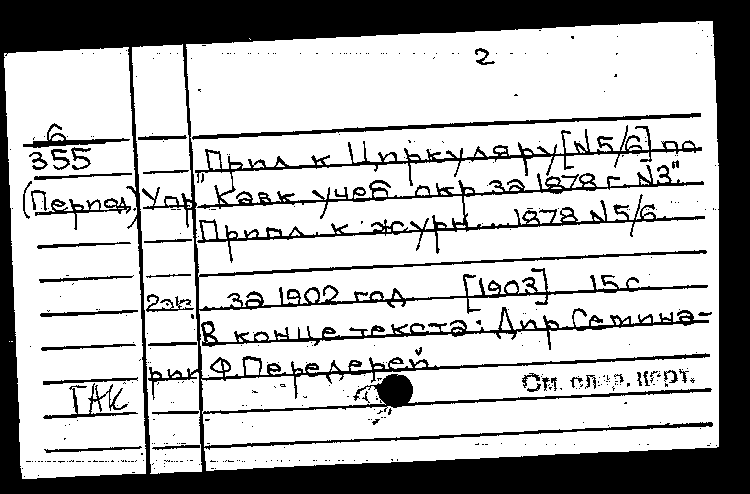 2
6
355 Прил к Циркуляру [N5/6] по
(Период) Упр "Кавк. учеб. окр за 1878 г. N3".
Прил. к журн.... 1878 N5/6
2экз ... за 1902 год [1903] 15 с
В конце текста: Дир. Семина-
рии Ф. Передерей
ГАК См. след. карт.